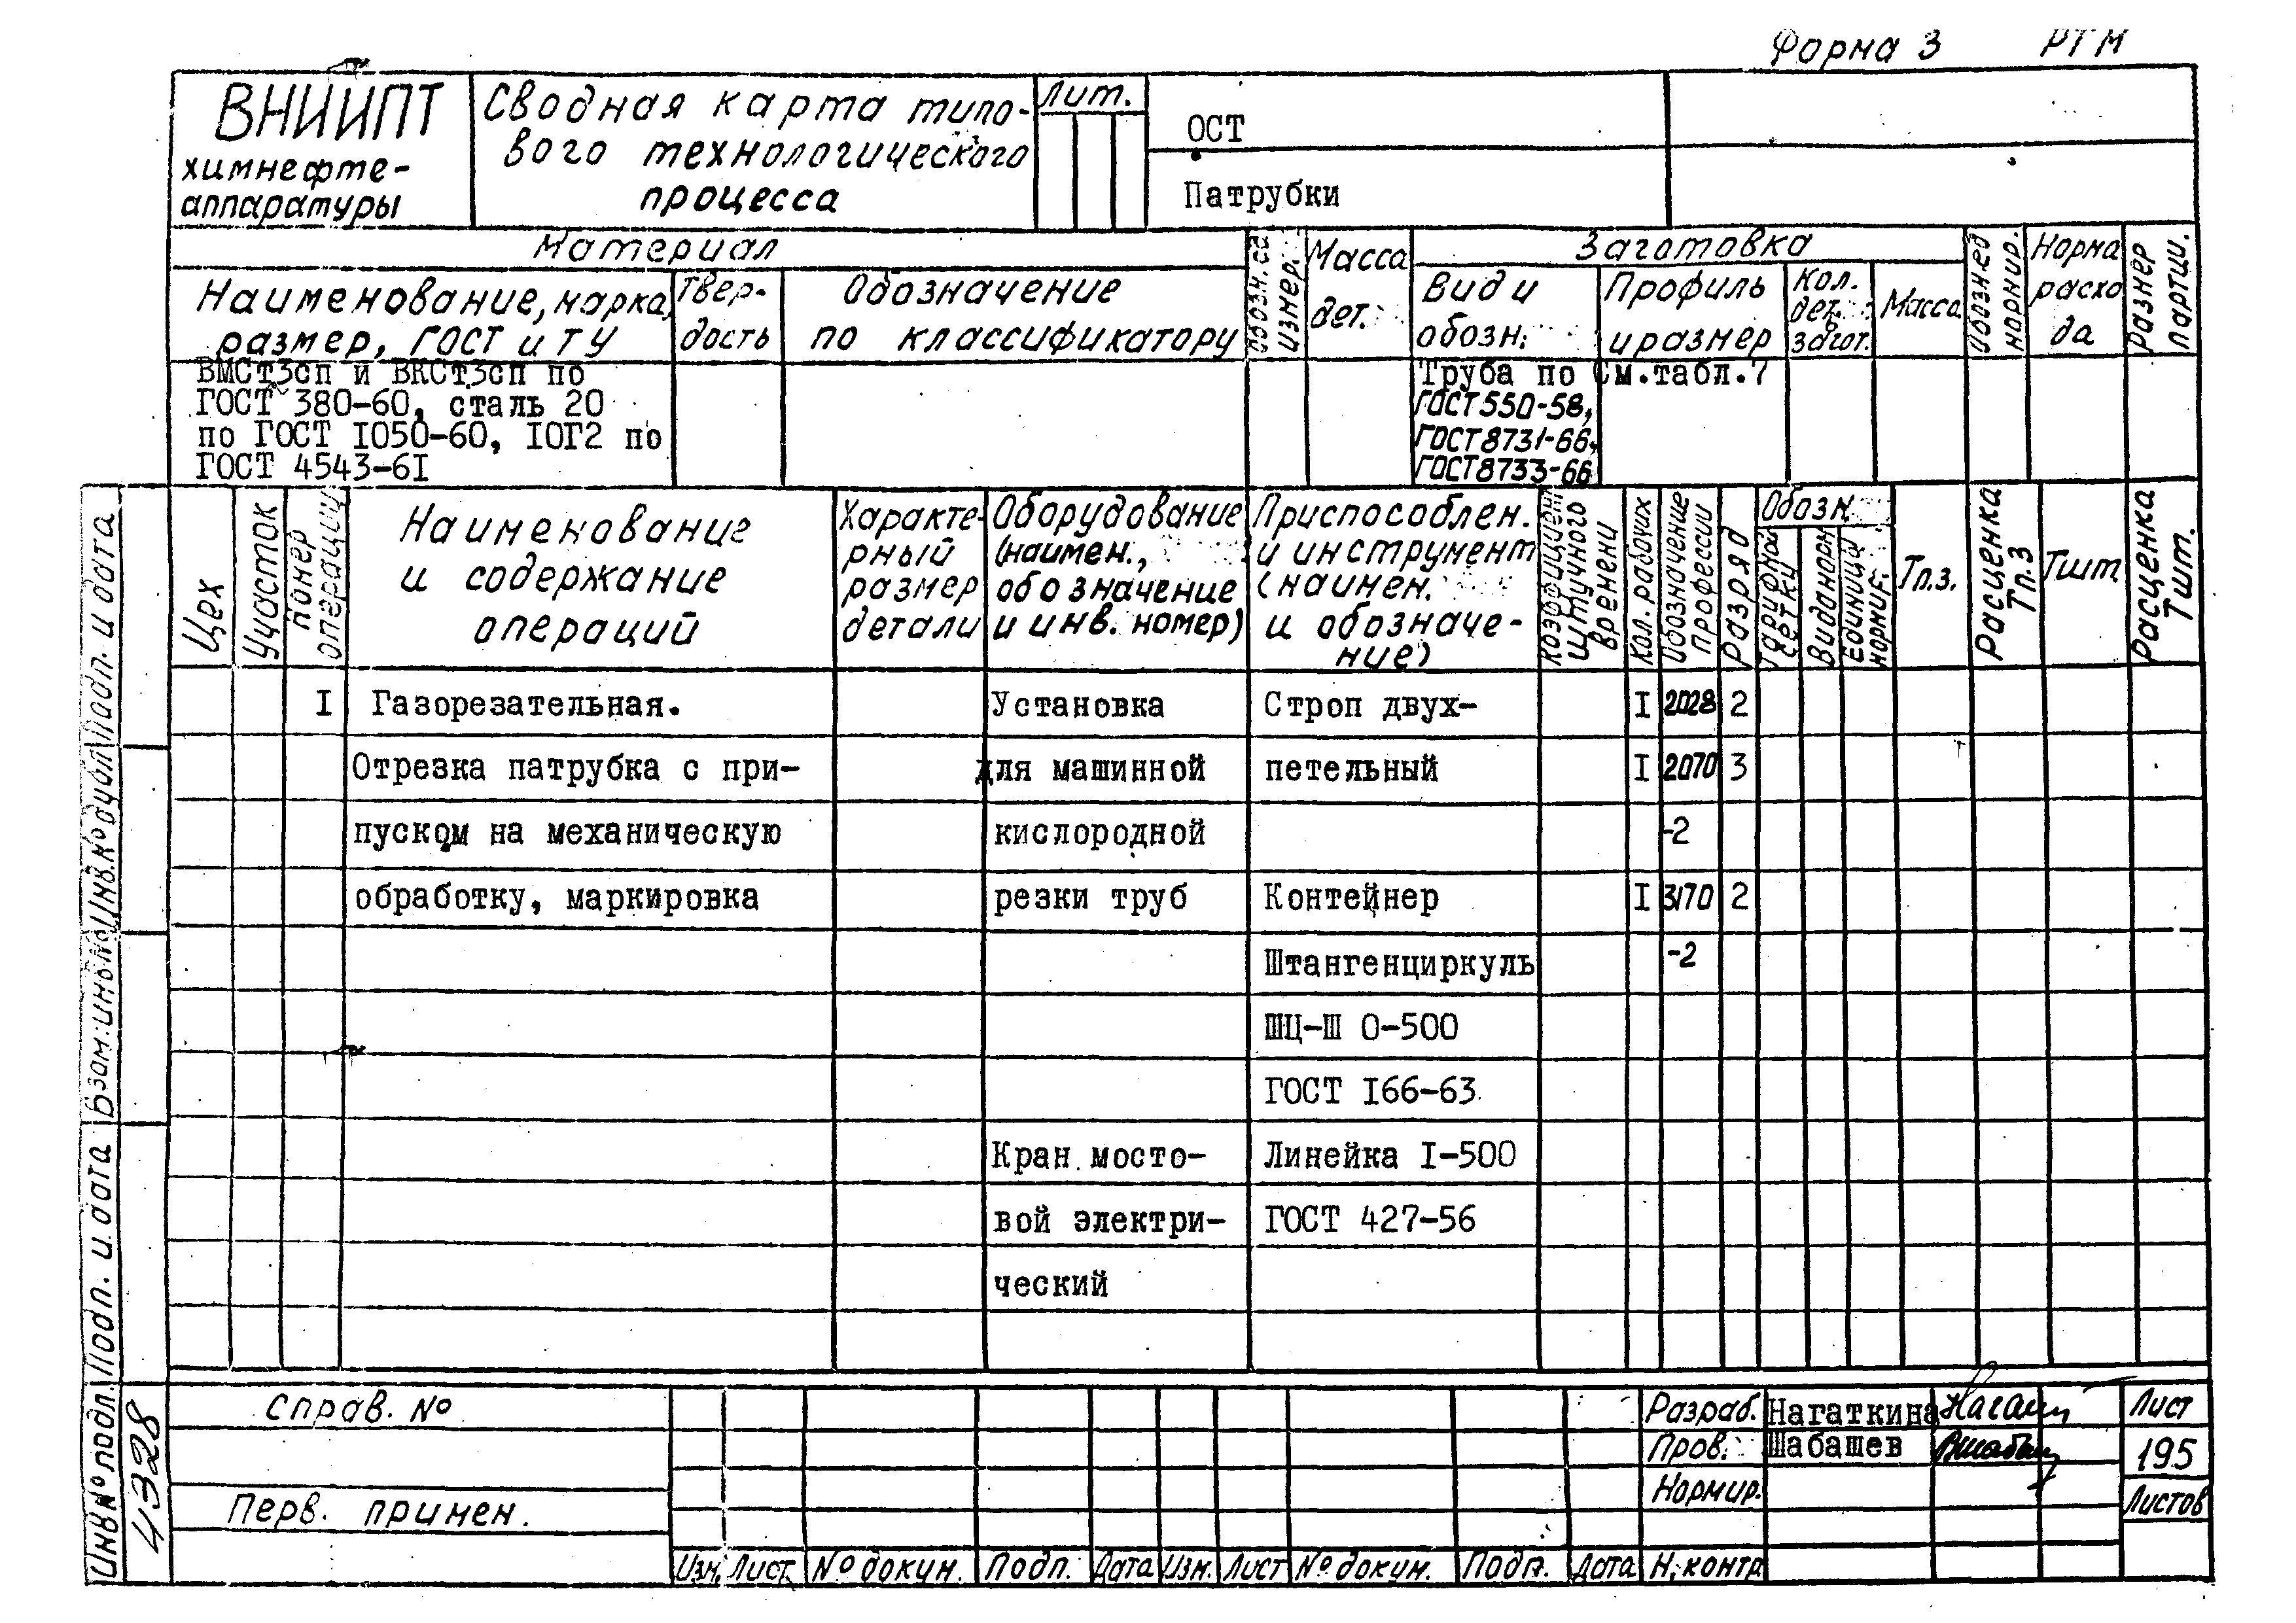 Форма 3 РТМ
ВНИИПТ
химнефте-
аппаратуры
Сводная карта типо-
вого технологического
процесса
Лит.
ОСТ
Патрубки
Материал
Наименование, марка,
размер, ГОСТ и ТУ
Твер-
дость
Обозначение
по классификатору
Обозн. ед
измер.
Масса
дет.
Заготовка
Вид и
обозн.
Профиль
и размер
Кол.
дет. в
загот.
Масса
Обозн ед
нормир.
Норма
расхо
да
Размер
партии.
ВМСт3сп и ВКСт3сп по
ГОСТ 380-60, сталь 20
по ГОСТ I050-60, I0Г2 по
ГОСТ 4543-6I
Труба по
ГОСТ 550-58,
ГОСТ 8731-66,
ГОСТ 8733-66
См.табл.7
Цех
Участок
Номер
операции
Наименование
и содержание
операций
Характе-
рный
размер
детали
Оборудование
(наимен.,
обозначение
и инв. номер)
Приспособлен.
и инструмент
(наимен.
и обозначе-
ние)
Коэффициент
штучного
времени
Кол. рабочих
Обозначение
профессии
Разряд
Обозн.
Тарифной
сетки
Вида норм
Единицы
нормир.
Тп.з.
Расценка
Тп.з
Тшт
Расценка
Тшт.
I Газорезательная. Установка Строп двух- I 2028 2
Отрезка патрубка с при- для машинной петельный I 2070 3
пуском на механическую кислородной -2
обработку, маркировка резки труб Контейнер I 3170 2
Штангенциркуль -2
ШЦ-Ш 0-500
ГОСТ I66-63
Кран мосто- Линейка I-500
вой электри- ГОСТ 427-56
ческий
Инв № подл. Подп. и дата Взам. инв № Инв. № дубл Подп. и дата
4328
Справ. №
Перв. примен.
Изм. Лист № докум. Подп. Дата Изм. Лист № докум. Подп. Дата
Разраб. Нагаткина
Пров. Шабашев
Нормир.
Н. контр
Лист
195
Листов